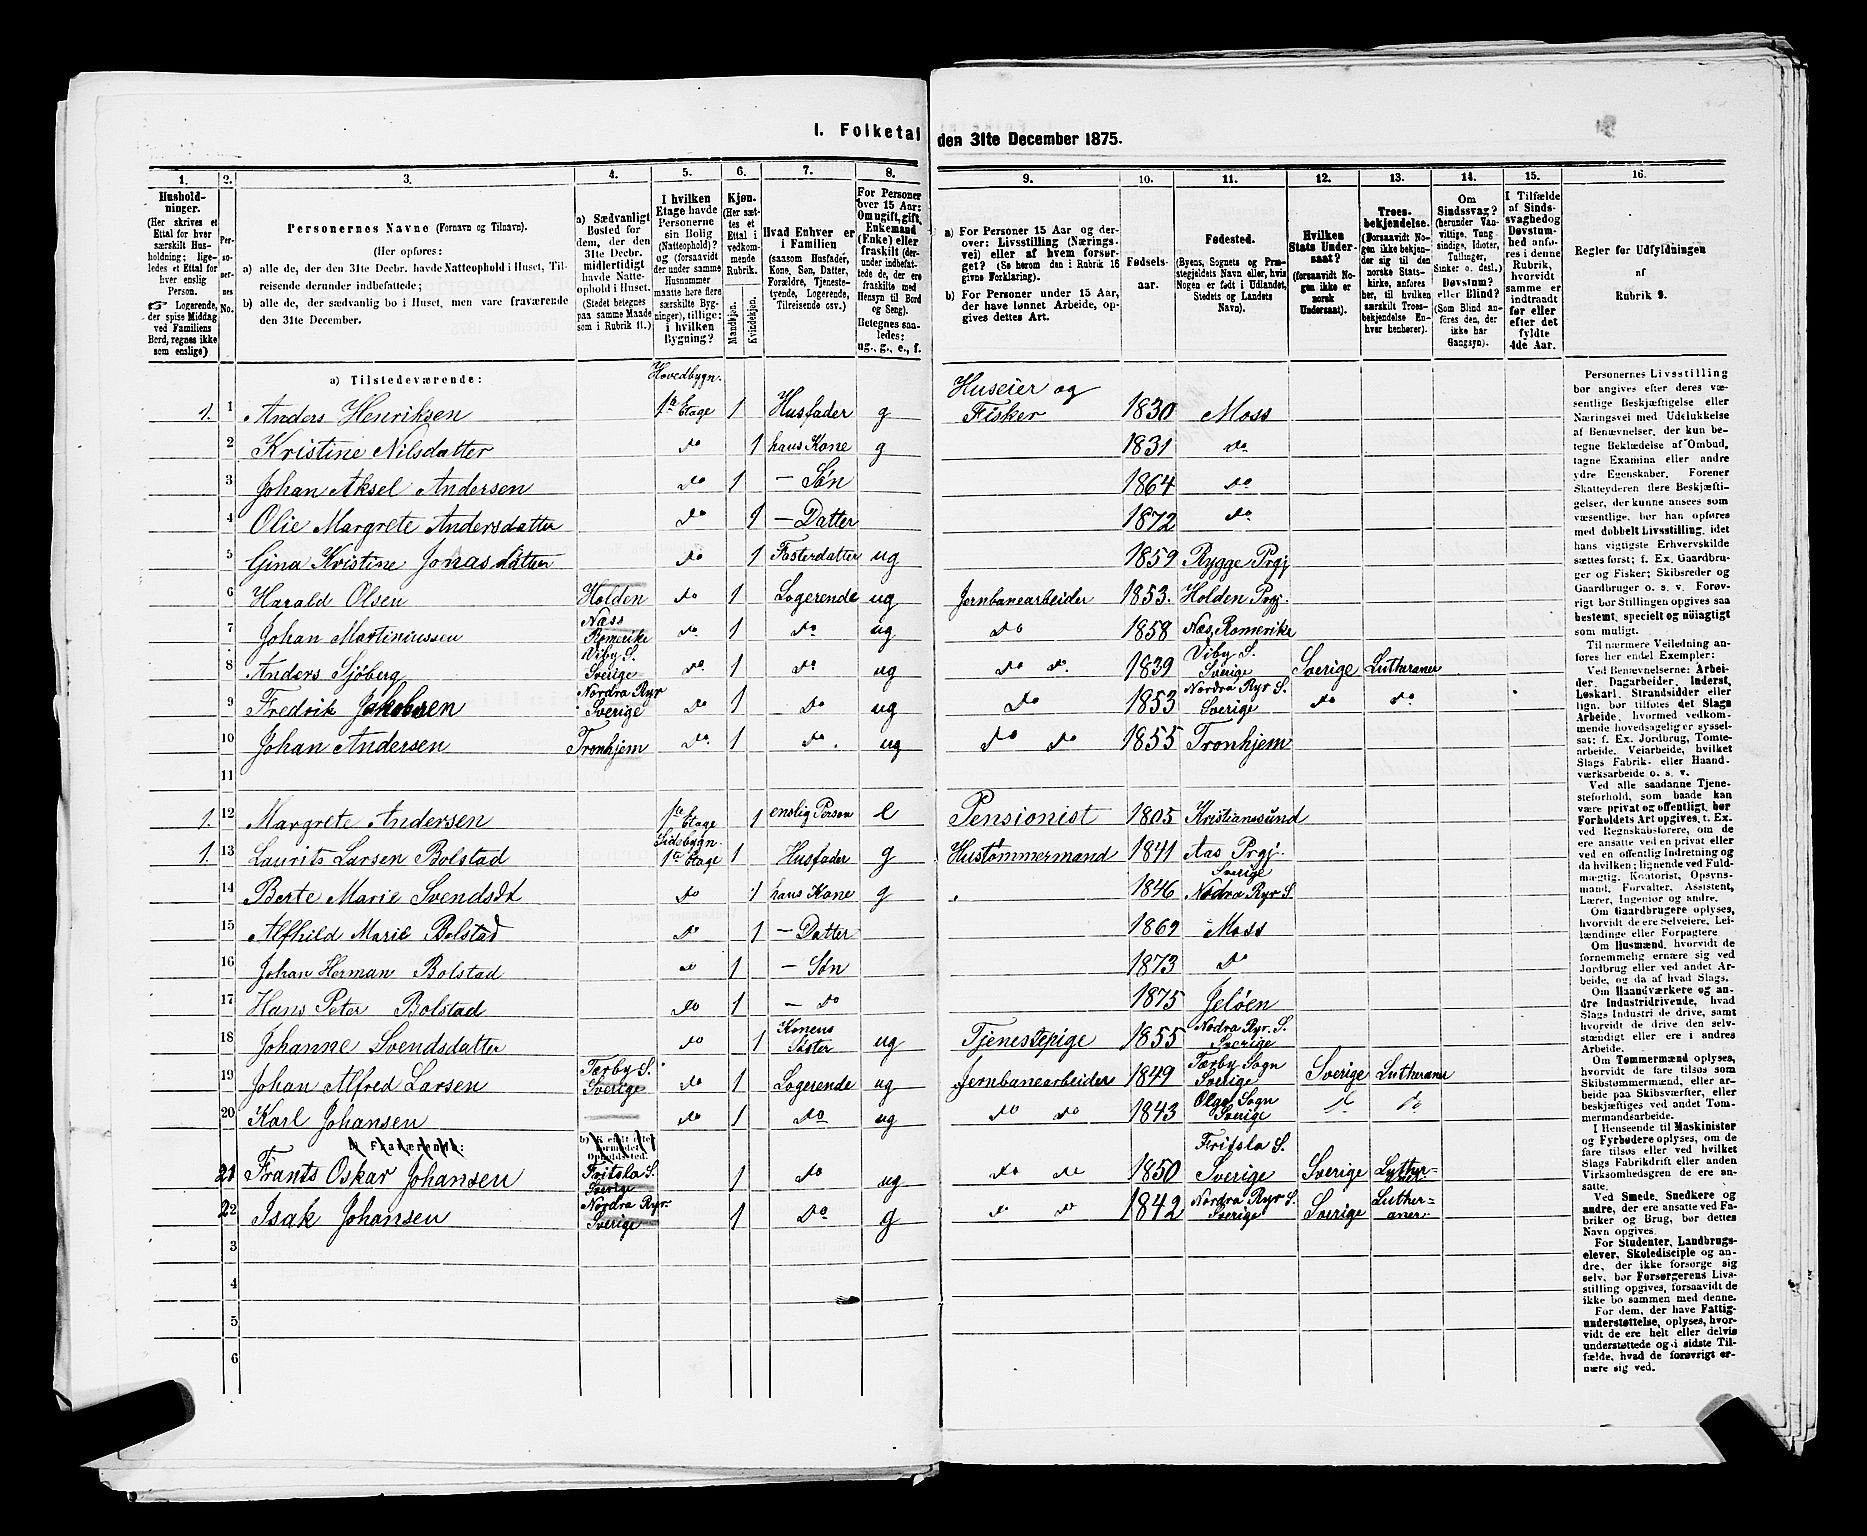 I. Folketal den 31te December 1875.
1. 2. 3. 4. 5. 6. 7. 8. 9. 10. 11. 12. 13. 14. 15. 16.
Hushold-
ninger.
(Her skrives et
Ettal for hver
særskilt Hus-
holdning; lige-
ledes et Ettal for
hver enslig
Person.
☞ Logerende,
der spise Middag
ved Familiens
Bord, regnes ikke
som enslige)
Per-
so-
ner-
nes
No.
Personernes Navne (Fornavn og Tilnavn).
(Her opføres:
a) alle de, der den 31te Decbr. havde Natteophold i Huset, Til-
reisende derunder indbefattede;
b) alle de, der sædvanlig bo i Huset, men vare fraværende
den 31te December.
a) Sædvanligt
Bosted for
dem, der den
31te Decbr.
midlertidigt
havde Natte-
ophold i Huset.
(Stedet betegnes
paa samme Maade
som i Rubrik 11.)
I hvilken
Etage havde
Personerne
sin Bolig
(Natteophold)?
og (forsaavidt
der under samme
Husnummer
maatte høre flere
særskilte Byg-
ninger), tillige:
i hvilken
Bygning?
Kjøn.
(Her sæt-
tes et
Ettal i
vedkom-
mende
Rubrik.
Mandkjøn.
Kvindekjøn.
Hvad Enhver er
i Familien
(saasom Husfader,
Kone, Søn, Datter,
Forældre, Tjeneste-
tyende, Logerende,
Tilreisende osv.)
For Personer
over 15 Aar:
Om ugift, gift,
Enkemand
(Enke) eller
fraskilt (der-
under indbefat-
tede de, der ere
fraskilte med
Hensyn til Bord
og Seng).
Betegnes saa-
ledes:
ug., g., e., f.
a) For Personer 15 Aar og der-
over: Livsstilling (Nærings-
vei) eller af hvem forsør-
get? (Se herom den i Rubrik 16
givne Forklaring).
b) For Personer under 15 Aar,
der have lønnet Arbeide, op-
gives dettes Art.
Fødsels-
aar.
Fødested.
(Byens, Sognets og Præ-
stegjeldets Navn eller, hvis
Nogen er født i Udlandet,
Stedets og Landets
Navn).
Hvilken
Stats Under-
saat?
(forsaavidt No-
gen ikke er
norsk
Undersaat).
Troes-
bekjendelse.
(Forsaavidt No-
gen ikke bekjen-
der sig til den
norske Stats-
kirke, anføres
her, til hvilken
særskilt Troes-
bekjendelse En-
hver henhører).
Om
Sindssvag?
(herunder Van-
vittige, Tung-
sindige, Idioter,
Tullinger,
Sinker o. desl.)
Døvstum?
eller Blind?
(Som Blind an-
føres den, der
ikke har
Gangsyn).
I Tilfælde
af Sinds-
svaghed og
Døvstum-
hed anfø-
res i denne
Rubrik,
hvorvidt
samme er
indtraadt
før eller
efter det
fyldte
4de Aar.
Regler for Udfyldningen
af
Rubrik 9.
a) Tilstedeværende:
1. 1 Anders Henriksen Hovedbygn. 1te Etage 1 Husfader g Huseier og Fisker 1830 Moss
2 Kristine Nilsdatter do 1 hans Kone g 1831 do
3 Johan Aksel Andersen do 1 - Søn 1864 do
4 Olie Margrete Andersdatter do 1 - Datter 1872 do
5 Gina Kristine Jonasdatter do 1 Fosterdatter ug 1859 Rygge Prgj
6 Harald Olsen Holden do 1 Logerende ug Jernbanearbeider 1853. Holden Prgj.
7 Johan Martiniussen Næss Romerike do 1 do ug do 1858 Næs, Romerike
8 Anders Sjöberg Viby S. Sverige do 1 do ug do do 1839 Viby S. Sverige Sverige Lutheraner
9 Fredrik Jakobsen Nordra Ryr Sverige do 1 do ug do 1853 Nordra Ryr S. Sverige do do
10 Johan Andersen Tronhjem do 1 do. ug do do 1855 Tronhjem
11
1. 12 Margrete Andersen 1te Etage 1 enslig Person e Pensionist 1805 Kristiansund
1. 13 Laurits Larsen Bolstad Sidebygn. 1te Etage 1 Husfader g Hustømmermand 1841 Aas Prgj.
14 Berte Marie Svendsdt do 1 hans Kone g 1846 Sverige Nordra Ryr S
15 Alfhild Marie Bolstad do 1 - Datter 1869 Moss
16 Johan Herman Bolstad do 1 - Søn 1873 do
17 Hans Peter Bolstad do 1 - do 1875 Jeløen
18 Johanne Svendsdatter do 1 Konens Søster ug Tjenestepige 1855 Nodra Ryr. S. Sverige
19 Johan Alfred Larsen Tærby S. Sverige do 1 Logerende ug Jernbanearbeider 1849 Tærby Sogn Sverige Sverige Lutheraner
20 Karl Johansen do 1 do ug do do 1843 Sogn Sverige do do
b) Fraværende:
21 Frants Oskar Johansen Fritsla S. Sverige 1 do ug do do 1850 Fritsla S. Sverige Sverige Lutheraner
22 Isak Johansen Nordra Ryr. Sverige 1 do g do do 1842 Nordra Ryr S. Sverige Sverige Lutheraner
3
4
5
6
Personernes Livsstilling
bør angives efter deres væ-
sentlige Beskjæftigelse eller
Næringsvei med Udelukkelse
af Benævnelser, der kun be-
tegne Beklædelse af Ombud,
tagne Examina eller andre
ydre Egenskaber. Forener
Skatteyderen flere Beskjæfti-
gelser, der kunne ansees som
væsentlige, bør han opføres
med dobbelt Livsstilling, idet
hans vigtigste Erhvervskilde
sættes først; f. Ex. Gaardbru-
ger og Fisker; Skibsreder og
Gaardbruger o. s. v. Forøv-
rigt bør Stillingen opgives saa
bestemt, specielt og nøiagtigt
som muligt.
Til nærmere Veiledning an-
føres her endel Exempler:
Ved Benævnelserne: Arbei-
der, Dagarbeider, Inderst,
Løskarl, Strandsidder eller
lign. bør tilføies det Slags
Arbeide, hvormed vedkom-
mende hovedsagelig er syssel-
sat; f. Ex. Jordbrug, Tomte-
arbeide, Veiarbeide, hvilket
Slags Fabrik- eller Haand-
værksarbeide o. s. v.
Ved alle saadanne Tjene-
steforhold, som baade kan
være privat og offentligt, bør
Forholdets Art opgives, t. Ex.
ved Regnskabsførere, om de
ere ansatte ved en privat eller
ved en offentlig Indretning og
da hvilken; lignende ved Fuld-
mægtig, Kontorist, Opsyns-
mand, Forvalter, Assistent,
Lærer, Ingeniør og andre.
Om Gaardbrugere oplyses,
hvorvidt de ere Selveiere, Lei-
lændinge eller Forpagtere.
Om Husmænd, hvorvidt de
fornemmelig ernære sig ved
Jordbrug eller ved andet Ar-
beide, og da af hvad Slags.
Om Haandværkere og an-
dre Industridrivende, hvad
Slags Industri de drive, samt
hvorvidt de drive den selv-
stændigt eller ere i andres
Arbeide.
Om Tømmermænd oplyses,
hvorvidt de fare tilsøs som
Skibstømmermænd, eller ar-
beide paa Skibsværfter, eller
beskjæftiges ved andet Tøm-
mermandsarbeide.
I Henseende til Maskinister
og Fyrbødere oplyses, om de
fare tilsøs eller ved hvilket
Slags Fabrikdrift eller anden
Virksomhedsgren de ere an-
satte.
Ved Smede, Snedkere og
andre, der ere ansatte ved Fa-
briker og Brug, bør dettes
Navn opgives.
For Studenter, Landbrugs-
elever, Skoledisciple og an-
dre, der ikke forsørge sig
selv, bør Forsørgerens Livs-
stilling opgives, forsaavidt de
ikke bo sammen med denne.
For dem, der have Fattig-
understøttelse, oplyses, hvor-
vidt de ere helt eller delvis
understøttede og i sidste Til-
fælde, hvad de forøvrigt er-
nære sig ved.